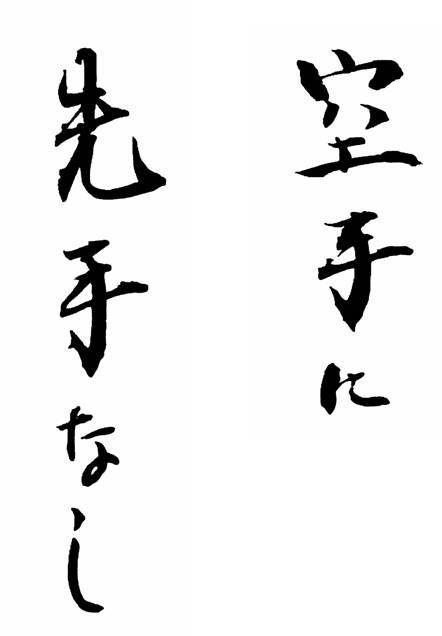 空手に
先手なし